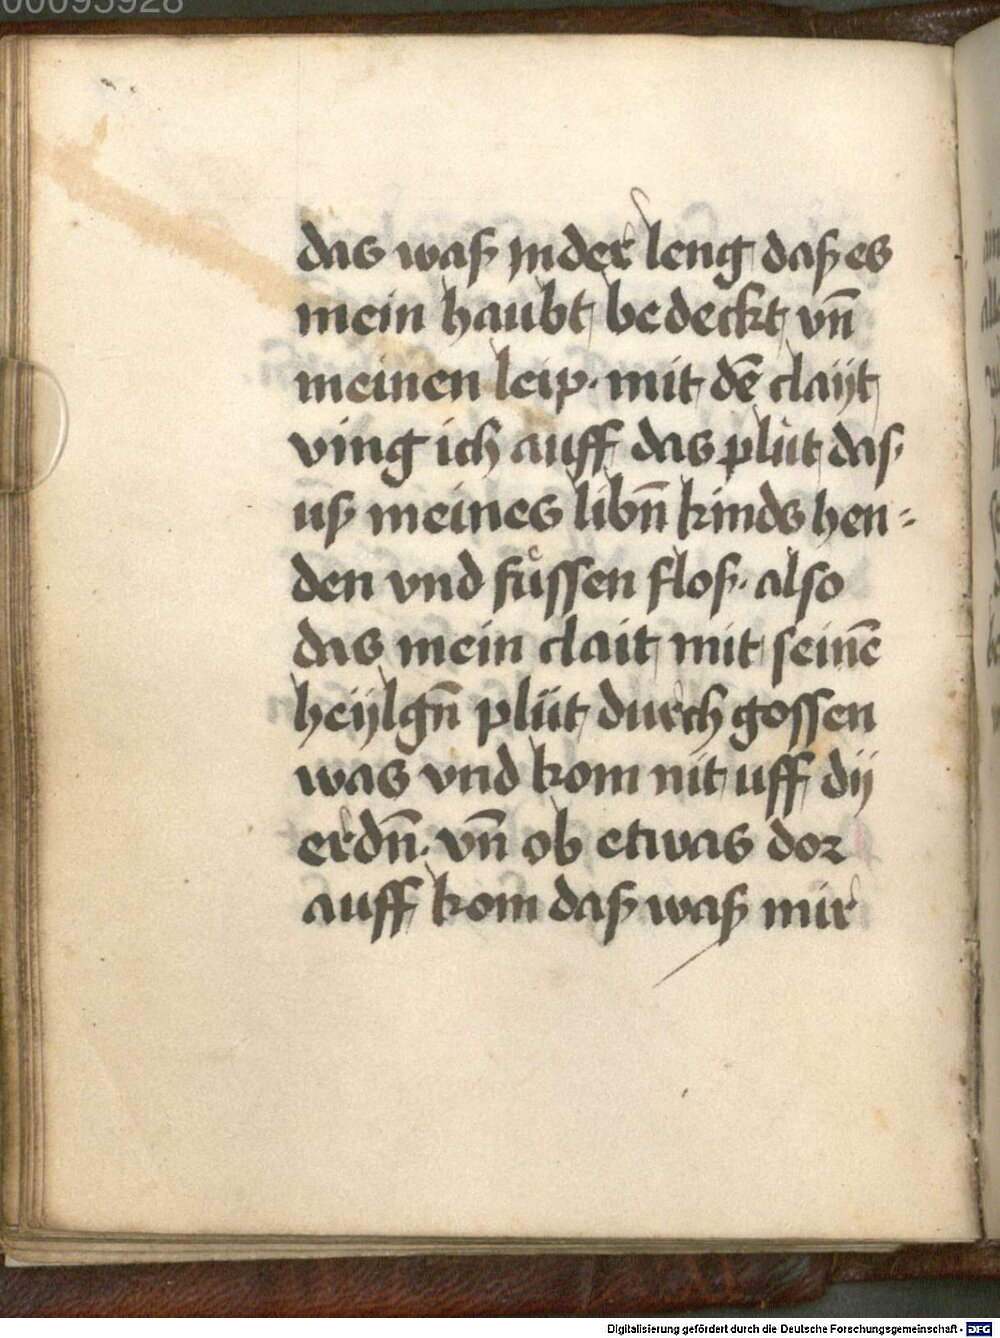 00095928
das waß in der leng daß es
mein haubt bedeckt vn̄
meinen leip · mit dē claÿt
ving ich auff das plüt das
uß meines libn̄ kinds hen=
den vnd fůssen floß · also
das mein clait mit seinē
heÿlgn̄ plüt durch gossen
was vnd kom nit uff dÿ
erdn̄ · vn̄ ob etwas dor
auff kom daß waß mir
Digitalisierung gefördert durch die Deutsche Forschungsgemeinschaft - DFG